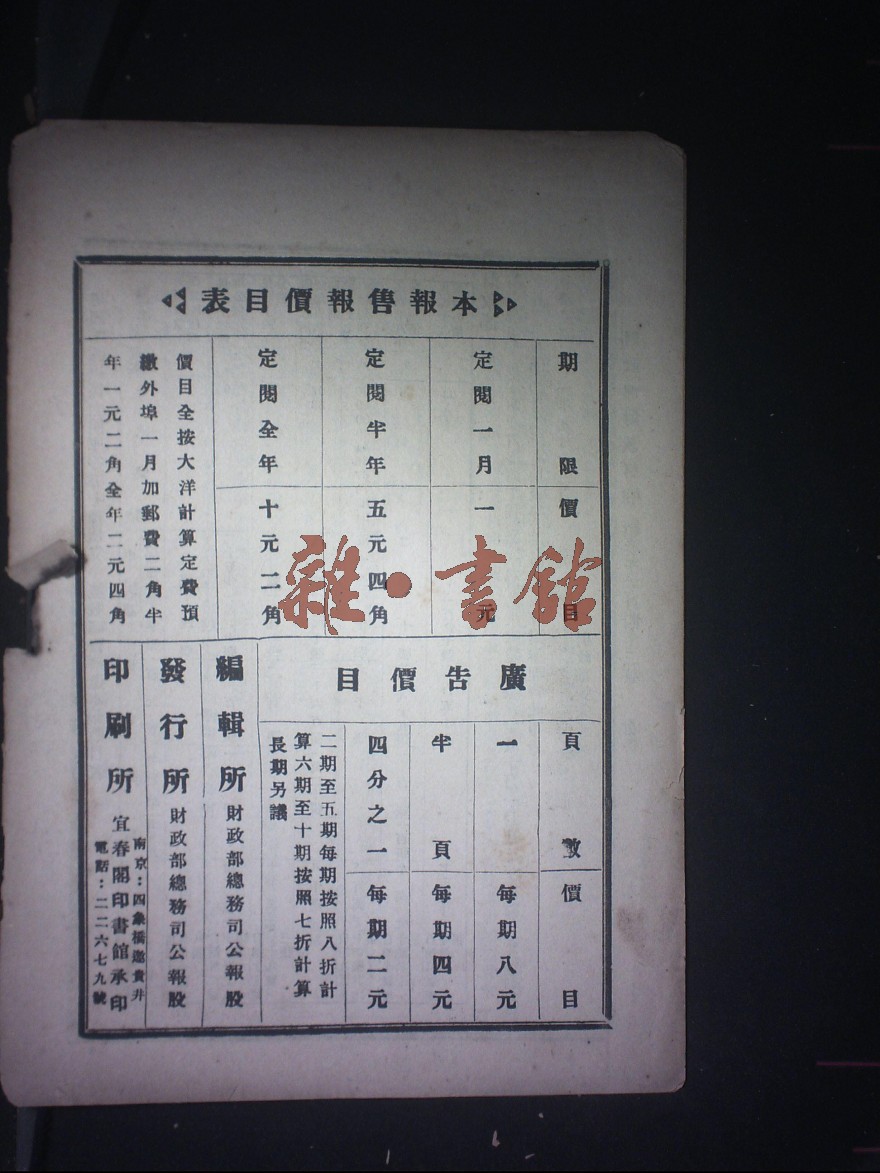 本報售報價目表
期限 價目
定閱一月 一元
定閱半年 五元四角
定閱全年 十元二角
價目全按大洋計算定費預
繳外埠一月加郵費二角半
年一元二角全年二元四角
廣告價目
頁數 價目
一 每期八元
半頁 每期四元
四分之一 每期二元
二期至五期每期按照八折計
算六期至十期按照七折計算
長期另議
編輯所 財政部總務司公報股
發行所 財政部總務司公報股
印刷所 宜春閣印書館承印
南京：四象橋邀貴井
電話：二二六七九號
雜·書館